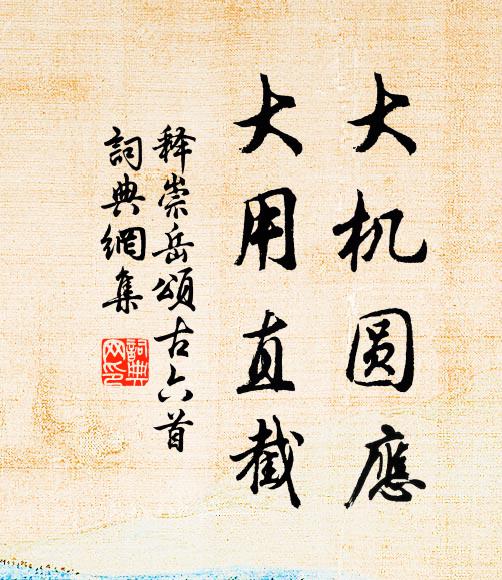 大机圆應
大用直截
释崇岳頌古六首
詞典網集
詞典網印